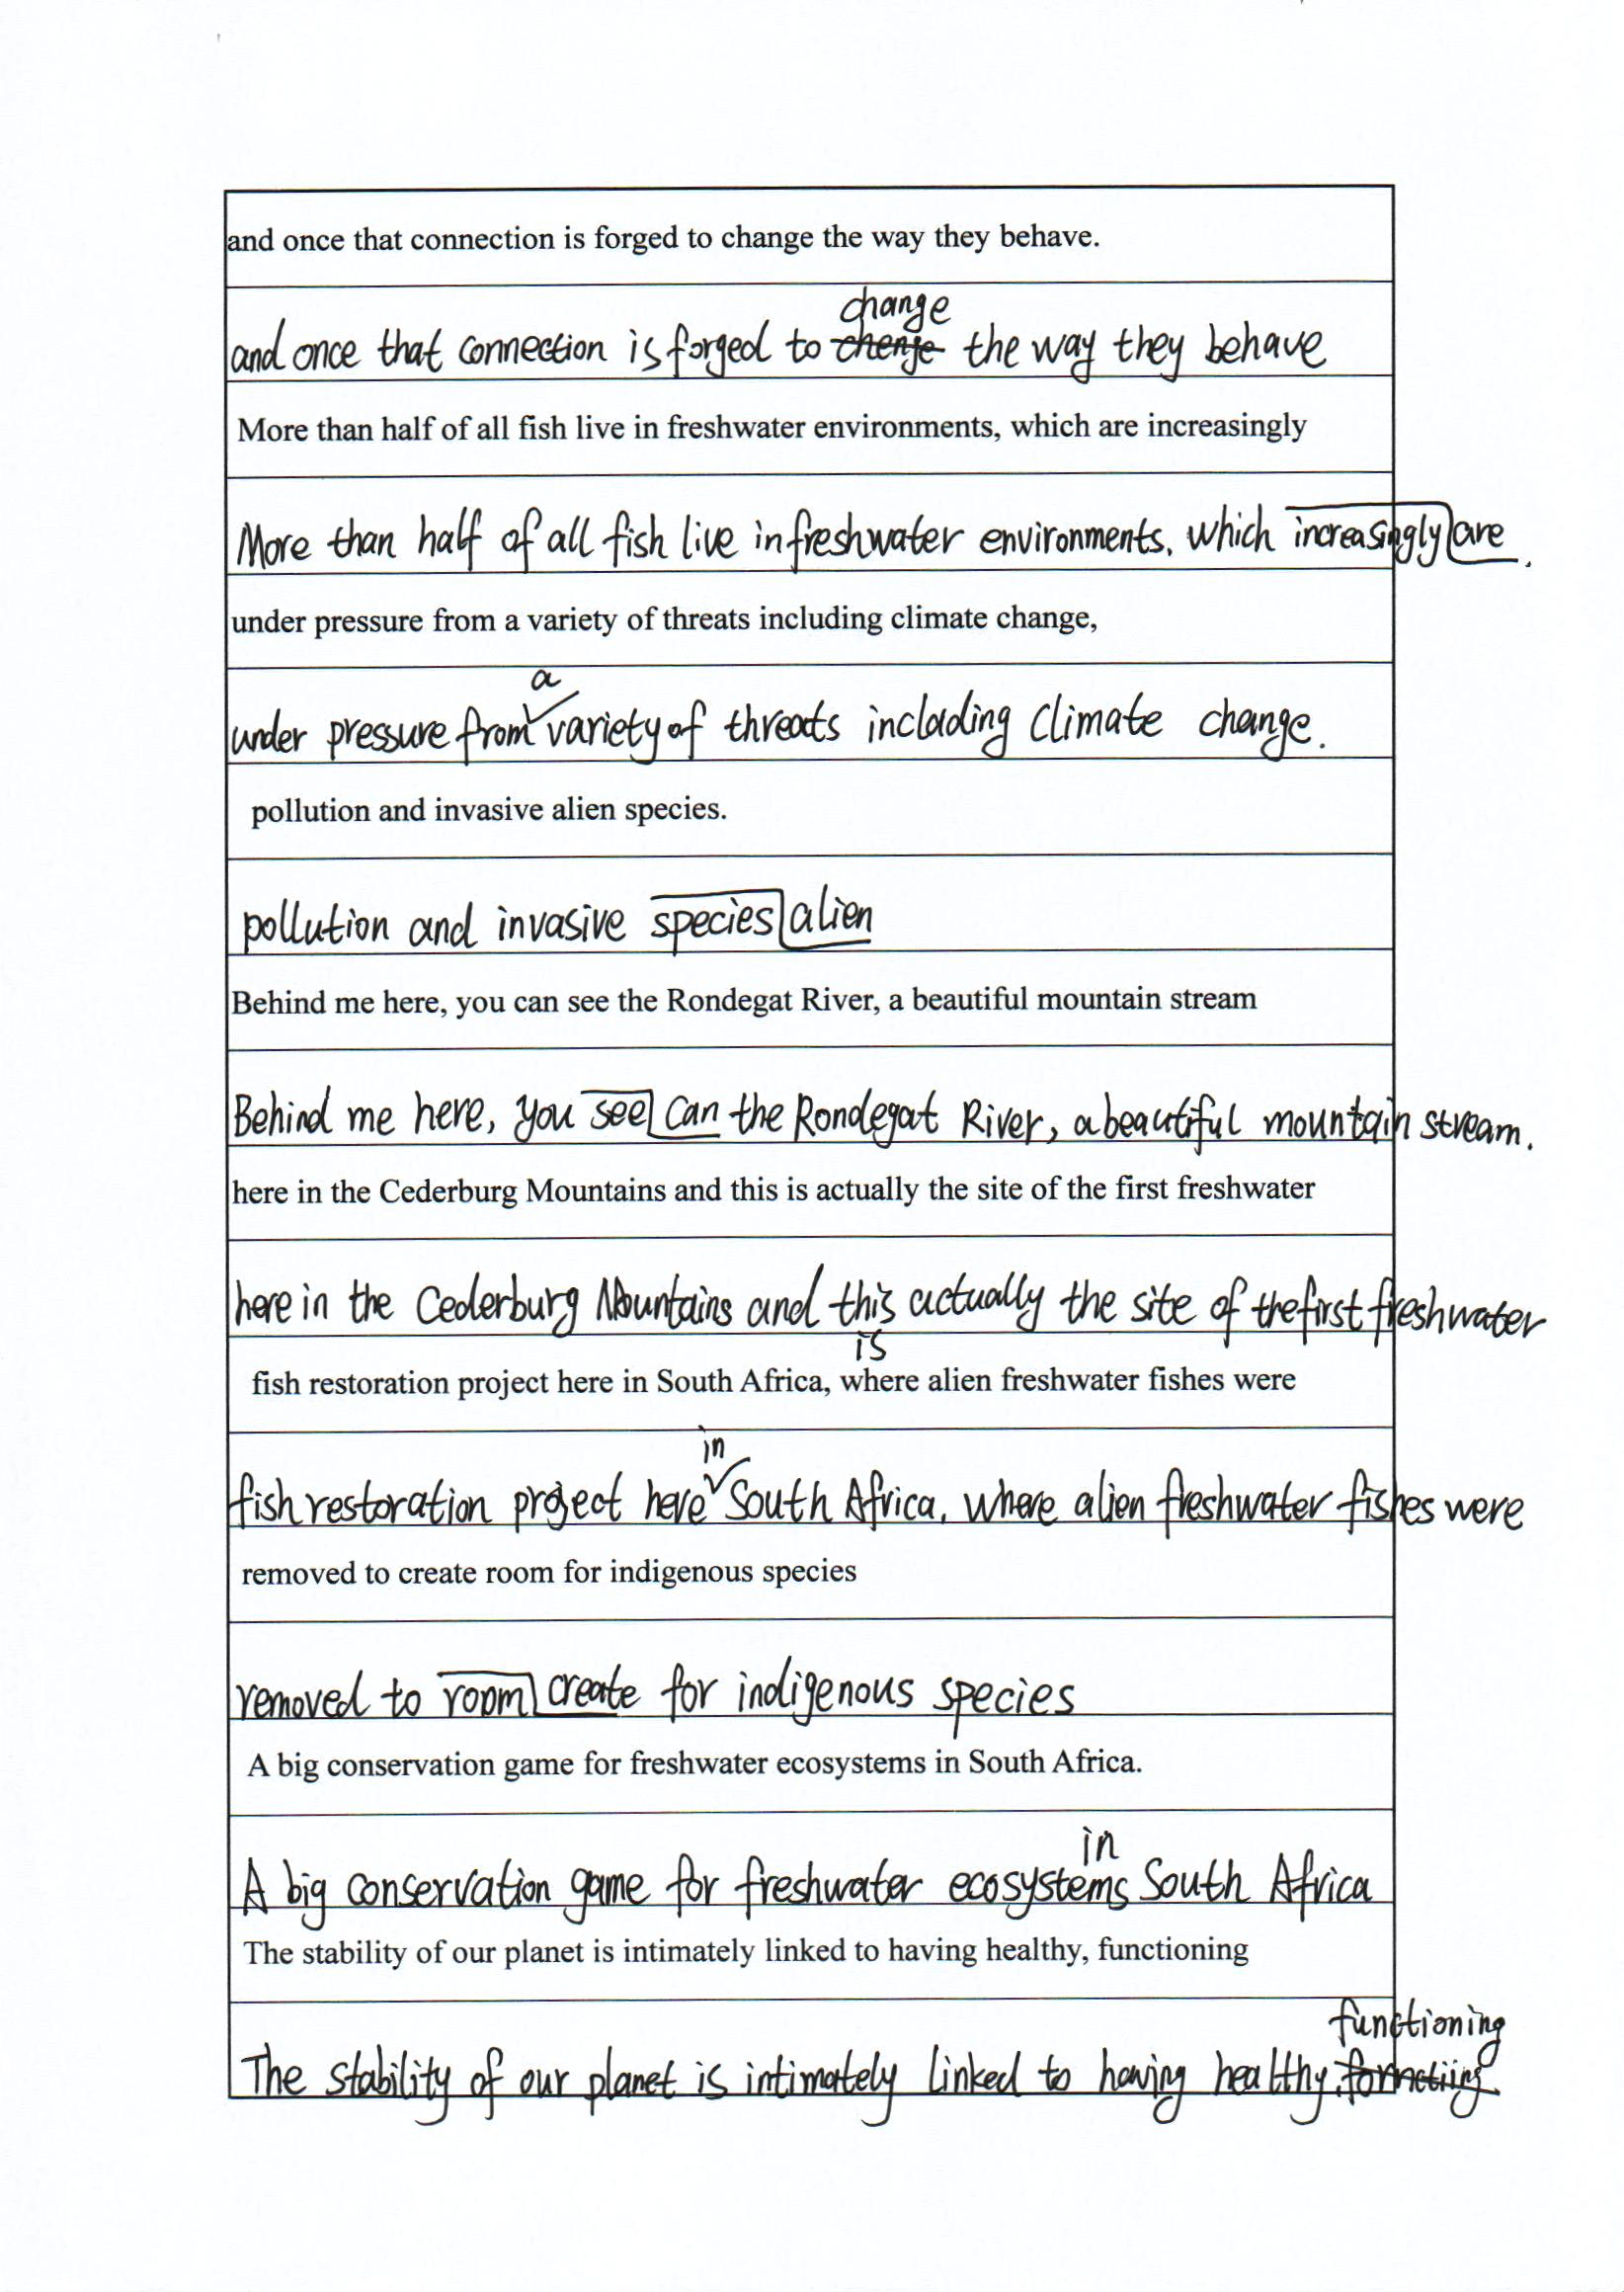 and once that connection is forged to change the way they behave.
change
and once that connection is forged to chenge the way they behave
More than half of all fish live in freshwater environments, which are increasingly
More than half of all fish live in freshwater environments. which increasingly are.
under pressure from a variety of threats including climate change,
a
under pressure from variety of threats including climate change.
pollution and invasive alien species.
pollution and invasive species alien
Behind me here, you can see the Rondegat River, a beautiful mountain stream
Behind me here, you see can the Rondegat River, a beautiful mountain stream.
here in the Cederburg Mountains and this is actually the site of the first freshwater
here in the Cederburg Mountains and this actually the site of the first freshwater
is
fish restoration project here in South Africa, where alien freshwater fishes were
in
fish restoration project here South Africa, where alien freshwater fishes were
removed to create room for indigenous species
removed to room create for indigenous species
A big conservation game for freshwater ecosystems in South Africa.
in
A big conservation game for freshwater ecosystems South Africa
The stability of our planet is intimately linked to having healthy, functioning
functioning
The stability of our planet is intimately linked to having healthy,